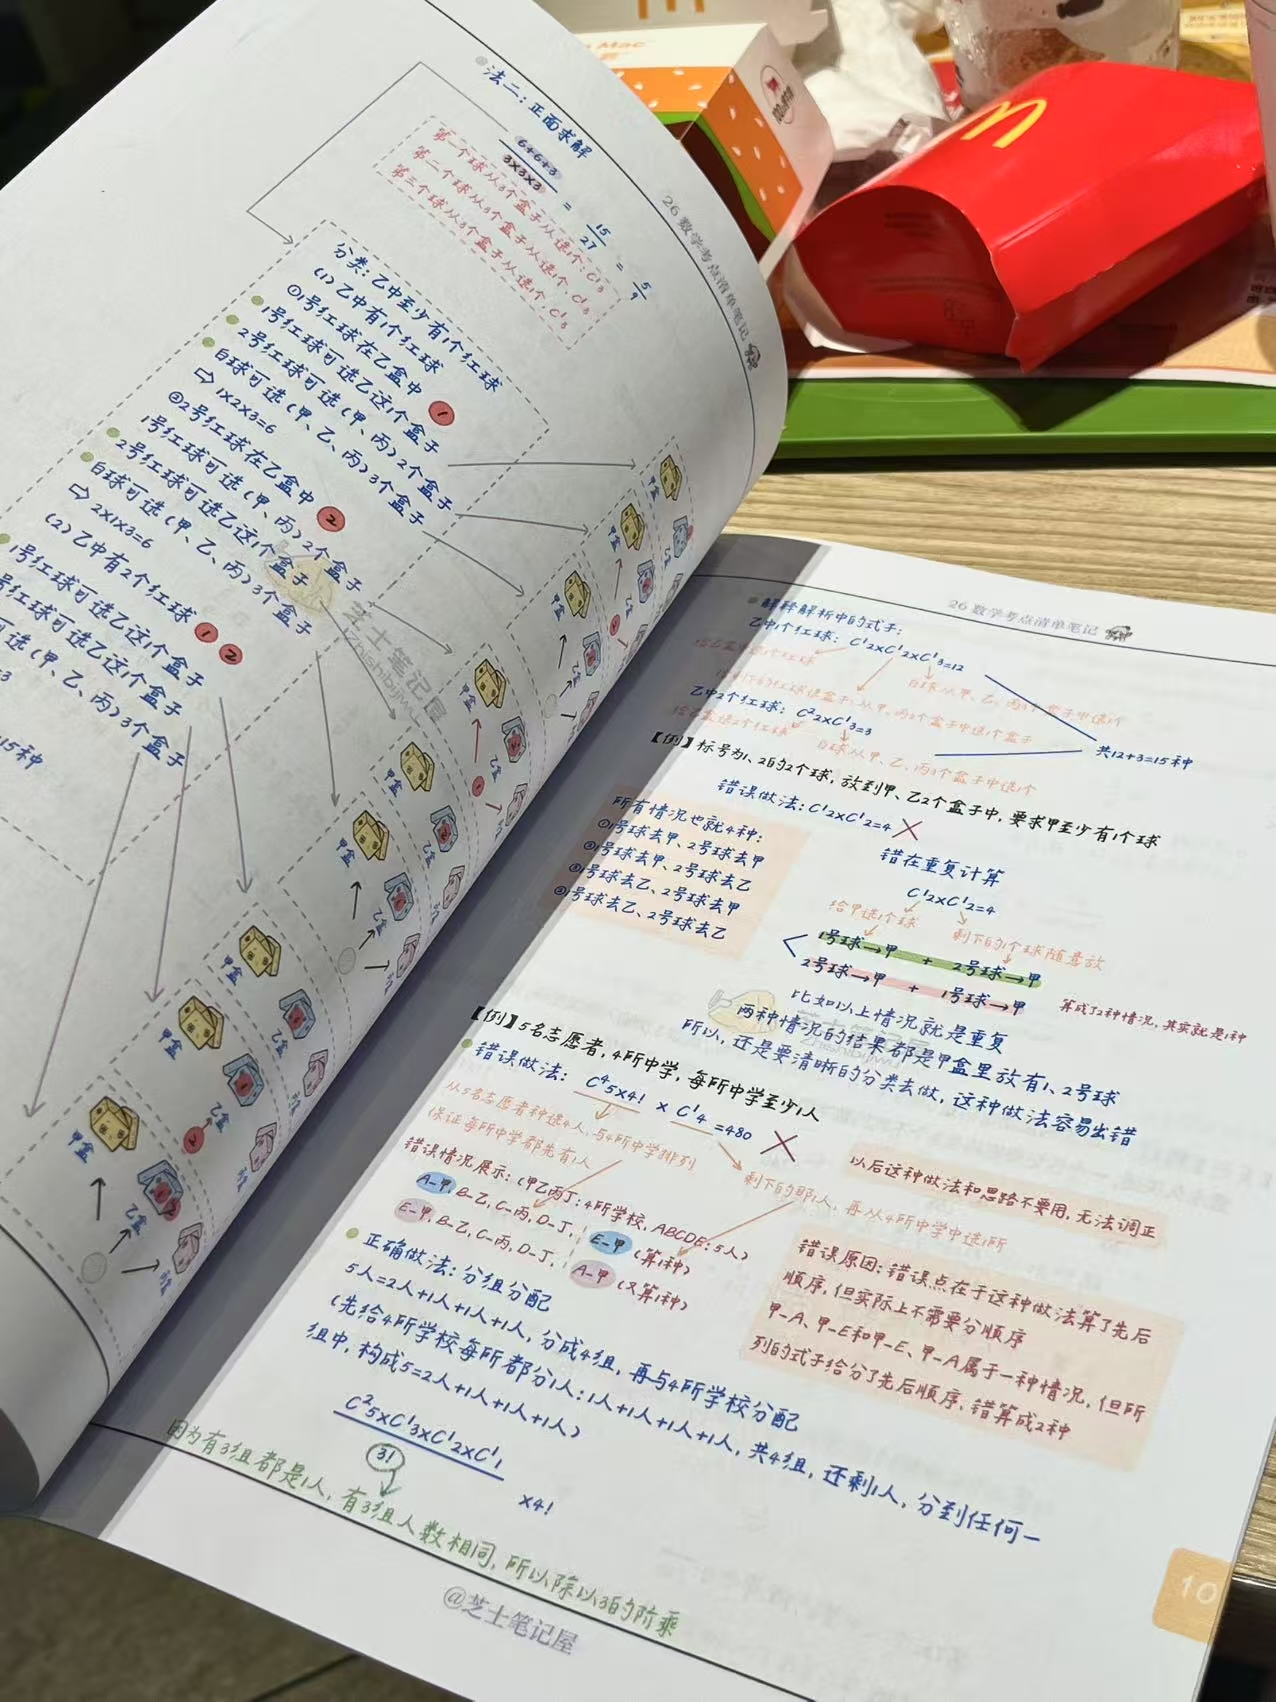 法二：正面求解
6+6+3
3×3×3
=
15
27
=
5
9
第一个球从3个盒子从选1个：C¹3
第二个球从3个盒子从选1个，C¹3
第三个球从3个盒子从选1个，C¹3
26 数学考点清单笔记
分类：乙中至少有1个红球
(1) 乙中有1个红球
①1号红球在乙盒中
1号红球可选乙这1个盒子
2号红球可选（甲、丙）2个盒子
白球可选（甲、乙、丙）3个盒子
⇨ 1×2×3=6
②2号红球在乙盒中
1号红球可选（甲、丙）2个盒子
2号红球可选乙这1个盒子
白球可选（甲、乙、丙）3个盒子
⇨ 2×1×3=6
(2) 乙中有2个红球
1号红球可选乙这1个盒子
号红球可选乙这1个盒子
可选（甲、乙、丙）3个盒子
15种
甲盒
乙盒
芝士笔记屋
Zhishibijiwu
26 数学考点清单笔记
解释解析中的式子：
乙中1个红球：C¹2×C¹2×C¹3=12
给乙盒中选1个红球
白球从甲、乙、丙3个盒子中选1个
乙中2个红球：C²2×C¹3=3
给乙盒选2个红球
白球从甲、乙、丙3个盒子中选1个
共12+3=15种
【例】标号为1、2的2个球，放到甲、乙2个盒子中，要求甲至少有1个球
错误做法：C¹2×C¹2=4
所有情况也就4种：
①1号球去甲、2号球去甲
1号球去甲、2号球去乙
1号球去乙、2号球去甲
1号球去乙、2号球去乙
错在重复计算
C¹2×C¹2=4
给甲选1个球
剩下的1个球随意放
1号球→甲 + 2号球→甲
2号球→甲 + 1号球→甲
算成了2种情况，其实就是1种
比如以上情况就是重复
两种情况的结果都是甲盒里放有1、2号球
所以，还是要清晰的分类去做，这种做法容易出错
【例】5名志愿者，4所中学，每所中学至少1人
错误做法：C⁴5×4! × C¹4 =480
从5名志愿者种选4人，与4所中学排列
保证每所中学都先有1人
剩下的那1人，再从4所中学中选1所
以后这种做法和思路不要用，无法调正
错误情况展示：（甲乙丙丁：4所学校，ABCDE：5人）
A-甲，B-乙，C-丙，D-丁， E-甲 （算1种）
E-甲，B-乙，C-丙，D-丁， A-甲 （又算1种）
错误原因：错误点在于这种做法算了先后
顺序，但实际上不需要分顺序
甲-A、甲-E和甲-E、甲-A属于一种情况，但所
列的式子给分了先后顺序，错算成2种
正确做法：分组分配
5人=2人+1人+1人+1人，分成4组，再与4所学校分配
（先给4所学校每所都分1人：1人+1人+1人+1人，共4组，还剩1人，分到任何一
组中，构成5=2人+1人+1人+1人）
C²5×C¹3×C¹2×C¹1
3!
×4!
因为有3组都是1人，有3组人数相同，所以除以3的阶乘
@芝士笔记屋
10